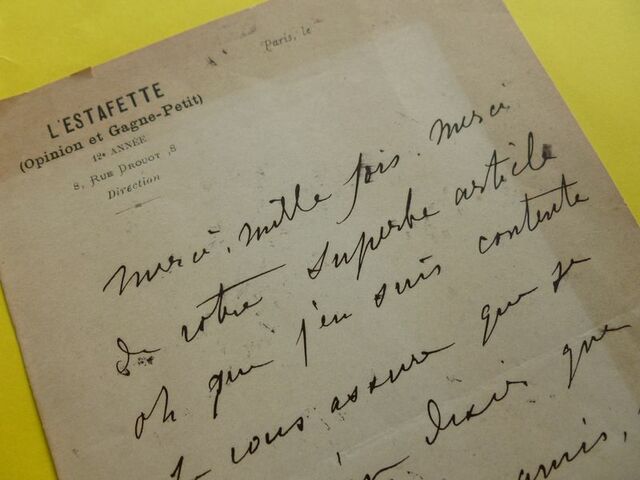 Paris, le
L'ESTAFETTE
(Opinion et Gagne-Petit)
12e ANNÉE
8, RUE DROUOT, 8
Direction
Merci, mille fois merci
de votre superbe article
oh que j'en suis contente
Je vous assure que je
désir que
amis,